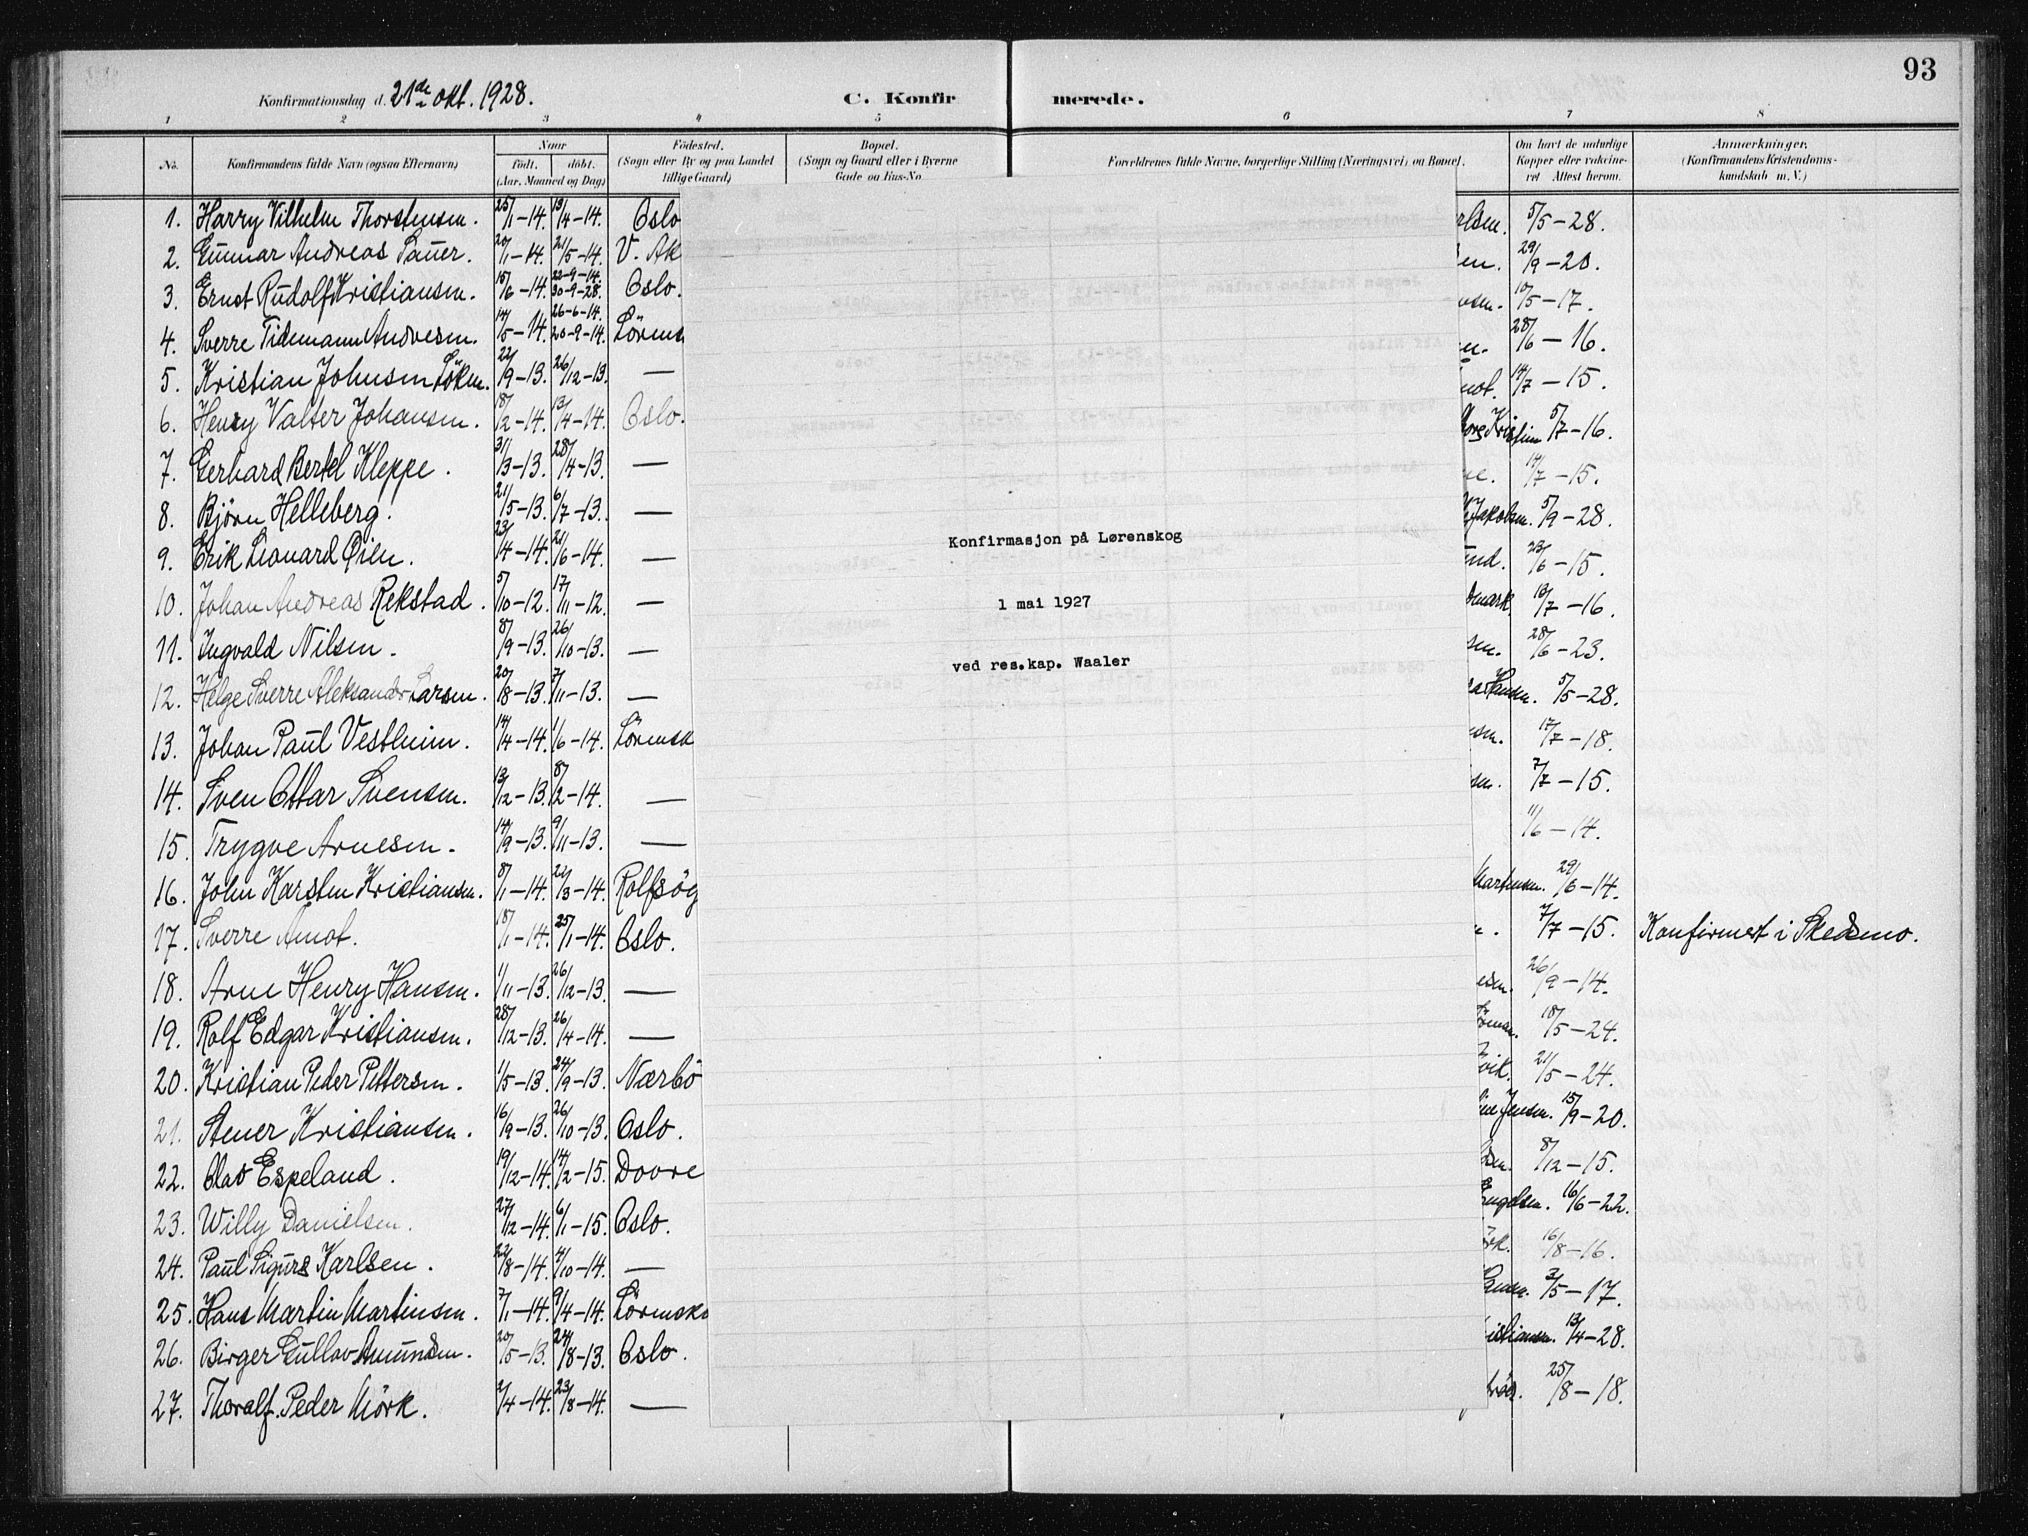 93
Konfirmationsdag d. 21de okt. 1928. C. Konfirmerede.
1 2 3 4 5 6 7 8
No. Konfirmandens fulde Navn (ogsaa Efternavn) Naar født. døbt. (Aar, Maaned og Dag) Fødested. (Sogn eller By og paa Landet tillige Gaard) Bopæl. (Sogn og Gaard eller i Byerne Gade og Hus-No Forældrenes fulde Navne, borgerlige Stilling (Næringsvei) og Bopæl. Om havt de naturlige Kopper eller vakcineret Attest herom. Anmærkninger. (Konfirmandens Kristendomskundskab m. V.)
1. Harry Vilhelm Thorstensen. 25/1-14. 13/4-14. Oslo rlsen. 5/5-28.
2. Gunnar Andreas Sauer. 20/1-14. 21/5-14. V. Ak en. 29/9-20.
3. Ernst Rudolf Kristiansen. 15/6-14. 22-9-14. 30-9-28. Oslo. sen. 10/5-17.
4. Sverre Tidemann Andresen. 14/5-14. 26-6-14. 20-9-14. Lörensk n. 28/6-16.
5. Kristian Johnsen Löken. 22/9-13. 26/12-13. — mot. 14/7-15.
6. Henry Valter Johansen. 18/2-14. 13/4-14. Oslo. 5/7-16.
7. Gerhard Bertel Kleppe. 31/3-13. 28/4-13. — e. 14/7-15.
8. Bjørn Helleberg. 21/5-13. 6/7-13. — Jakobsen. 5/9-28.
9. Erik Leonard Øien. 23/4-14. 21/6-14. — und. 23/6-15.
10. Johan Andreas Rekstad. 5/10-12. 17/11-12. — mark 13/7-16.
11. Ingvald Nilsen. 8/9-13. 26/10-13. — sen. 28/6-23.
12. Helge Sverre Aleksander Larsen. 20/8-13. 7/11-13. — Hansen. 5/5-28.
13. Johan Paul Vestheim. 14/4-14. 1/6-14. Lörensk sen. 17/7-18.
14. Sven Ottar Svensen. 13/12-13. 8/2-14. — sen. 7/7-15.
15. Trygve Arnesen. 14/9-13. 9/11-13. — 11/6-14.
16. John Karsten Kristiansen. 8/1-14. 22/3-14. Rolfsög Martinsen. 29/6-14.
17. Sverre Amot. 18/1-14. 25/1-14. Oslo. 7/7-15. Konfirmert i Skedsmo.
18. Arne Henry Hansen. 1/11-13. 26/12-13. — esen. 26/9-14.
19. Rolf Edgar Kristiansen. 28/12-13. 26/4-14. — 18/5-24.
20. Kristian Peder Pettersen. 1/5-13. 24/9-13. Nærbö vik. 21/5-24.
21. Stener Kristiansen. 16/9-13. 26/10-13. Oslo. ine Jensen. 15/9-20.
22. Olav Espeland. 19/12-14. 14/2-15. Dovre sen. 8/12-15.
23. Willy Danielsen. 27/12-14. 6/1-15. Oslo. Engelsen. 16/6-22.
24. Paul Sigurd Karlsen. 22/8-14. 4/10-14. — örk. 16/8-16.
25. Hans Martin Martinsen. 7/1-14. 9/4-14. Lörensko 2/5-17.
26. Birger Gullov Amundsen. 20/5-13. 24/8-13. Oslo. istiansen. 13/4-28.
27. Thoralf Peder Mörk. 2/4-14. 23/8-14. — 25/8-18.
Konfirmasjon på Lørenskog
1 mai 1927
ved res.kap. Waaler